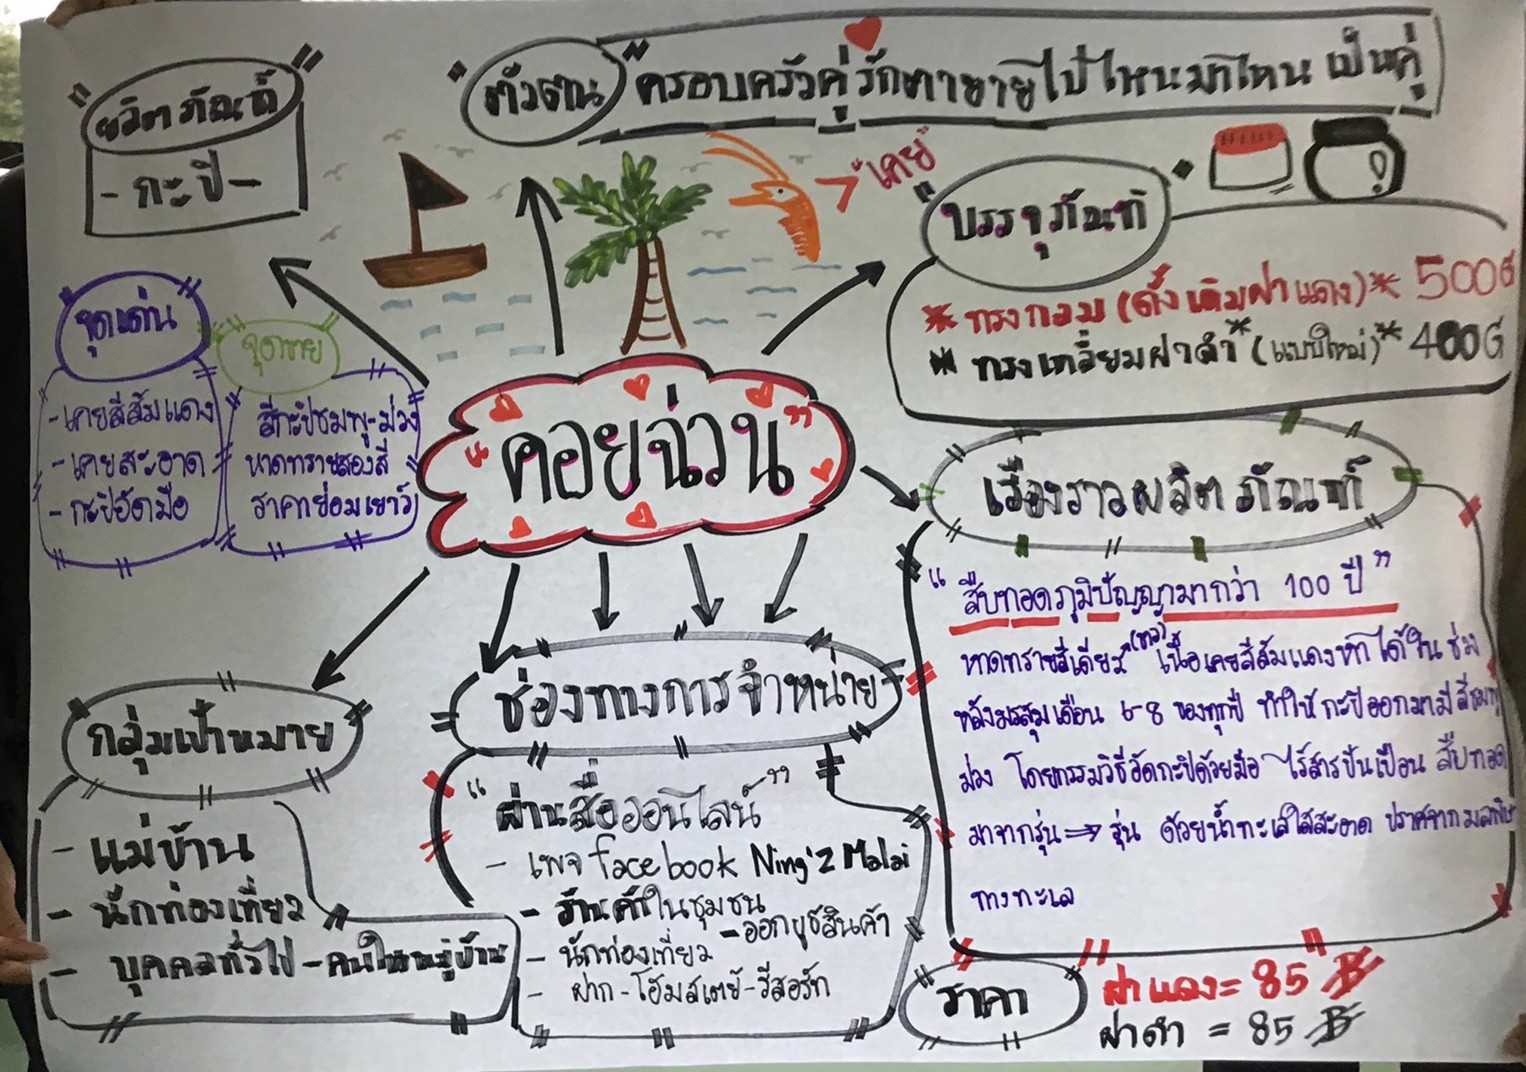 "ผลิตภัณฑ์"
- กะปิ -
"ตัวตน" "ครอบครัวคู่รักตายายไปไหนมาไหน เป็นคู่
"เคย"
"บรรจุภัณฑ์"
* ทรงกลม (ดั้งเดิมฝาแดง) * 500G
* ทรงเหลี่ยมฝาดำ * (แบบใหม่) * 400G
"จุดเด่น"
- เคยสีส้มแดง
- เคยสะอาด
- กะปิอัดมือ
"จุดขาย"
สีกะปิชมพู-ม่วง
หาดทรายสองสี
ราคาย่อมเยาว์
"คอยฉ่วน"
เรื่องราวผลิตภัณฑ์
"สืบทอดภูมิปัญญามากว่า 100 ปี"
หาดทรายสีเดียว (ขาว) เนื้อเคยสีส้มแดงหาได้ใน ช่วง
หลังมรสุมเดือน 6-8 ของทุกปี ทำให้กะปิออกมามีสีชมพู
ม่วง โดยกรรมวิธีอัดกะปิด้วยมือ ไร้สารปนเปื้อน สืบทอด
มาจากรุ่น => รุ่น ด้วยน้ำทะเลใสสะอาด ปราศจากมลพิษ
ทางทะเล
"กลุ่มเป้าหมาย"
- แม่บ้าน
- นักท่องเที่ยว
- บุคคลทั่วไป - คนในหมู่บ้าน
ช่องทางการจำหน่าย
"ผ่านสื่อออนไลน์"
- เพจ facebook Ning'z Malai
- ร้านค้าในชุมชน
- ออกบูธสินค้า
- นักท่องเที่ยว
- ฝาก - โฮมสเตย์ - รีสอร์ท
"ราคา"
"ฝาแดง = 85" ฿
ฝาดำ = 85 ฿